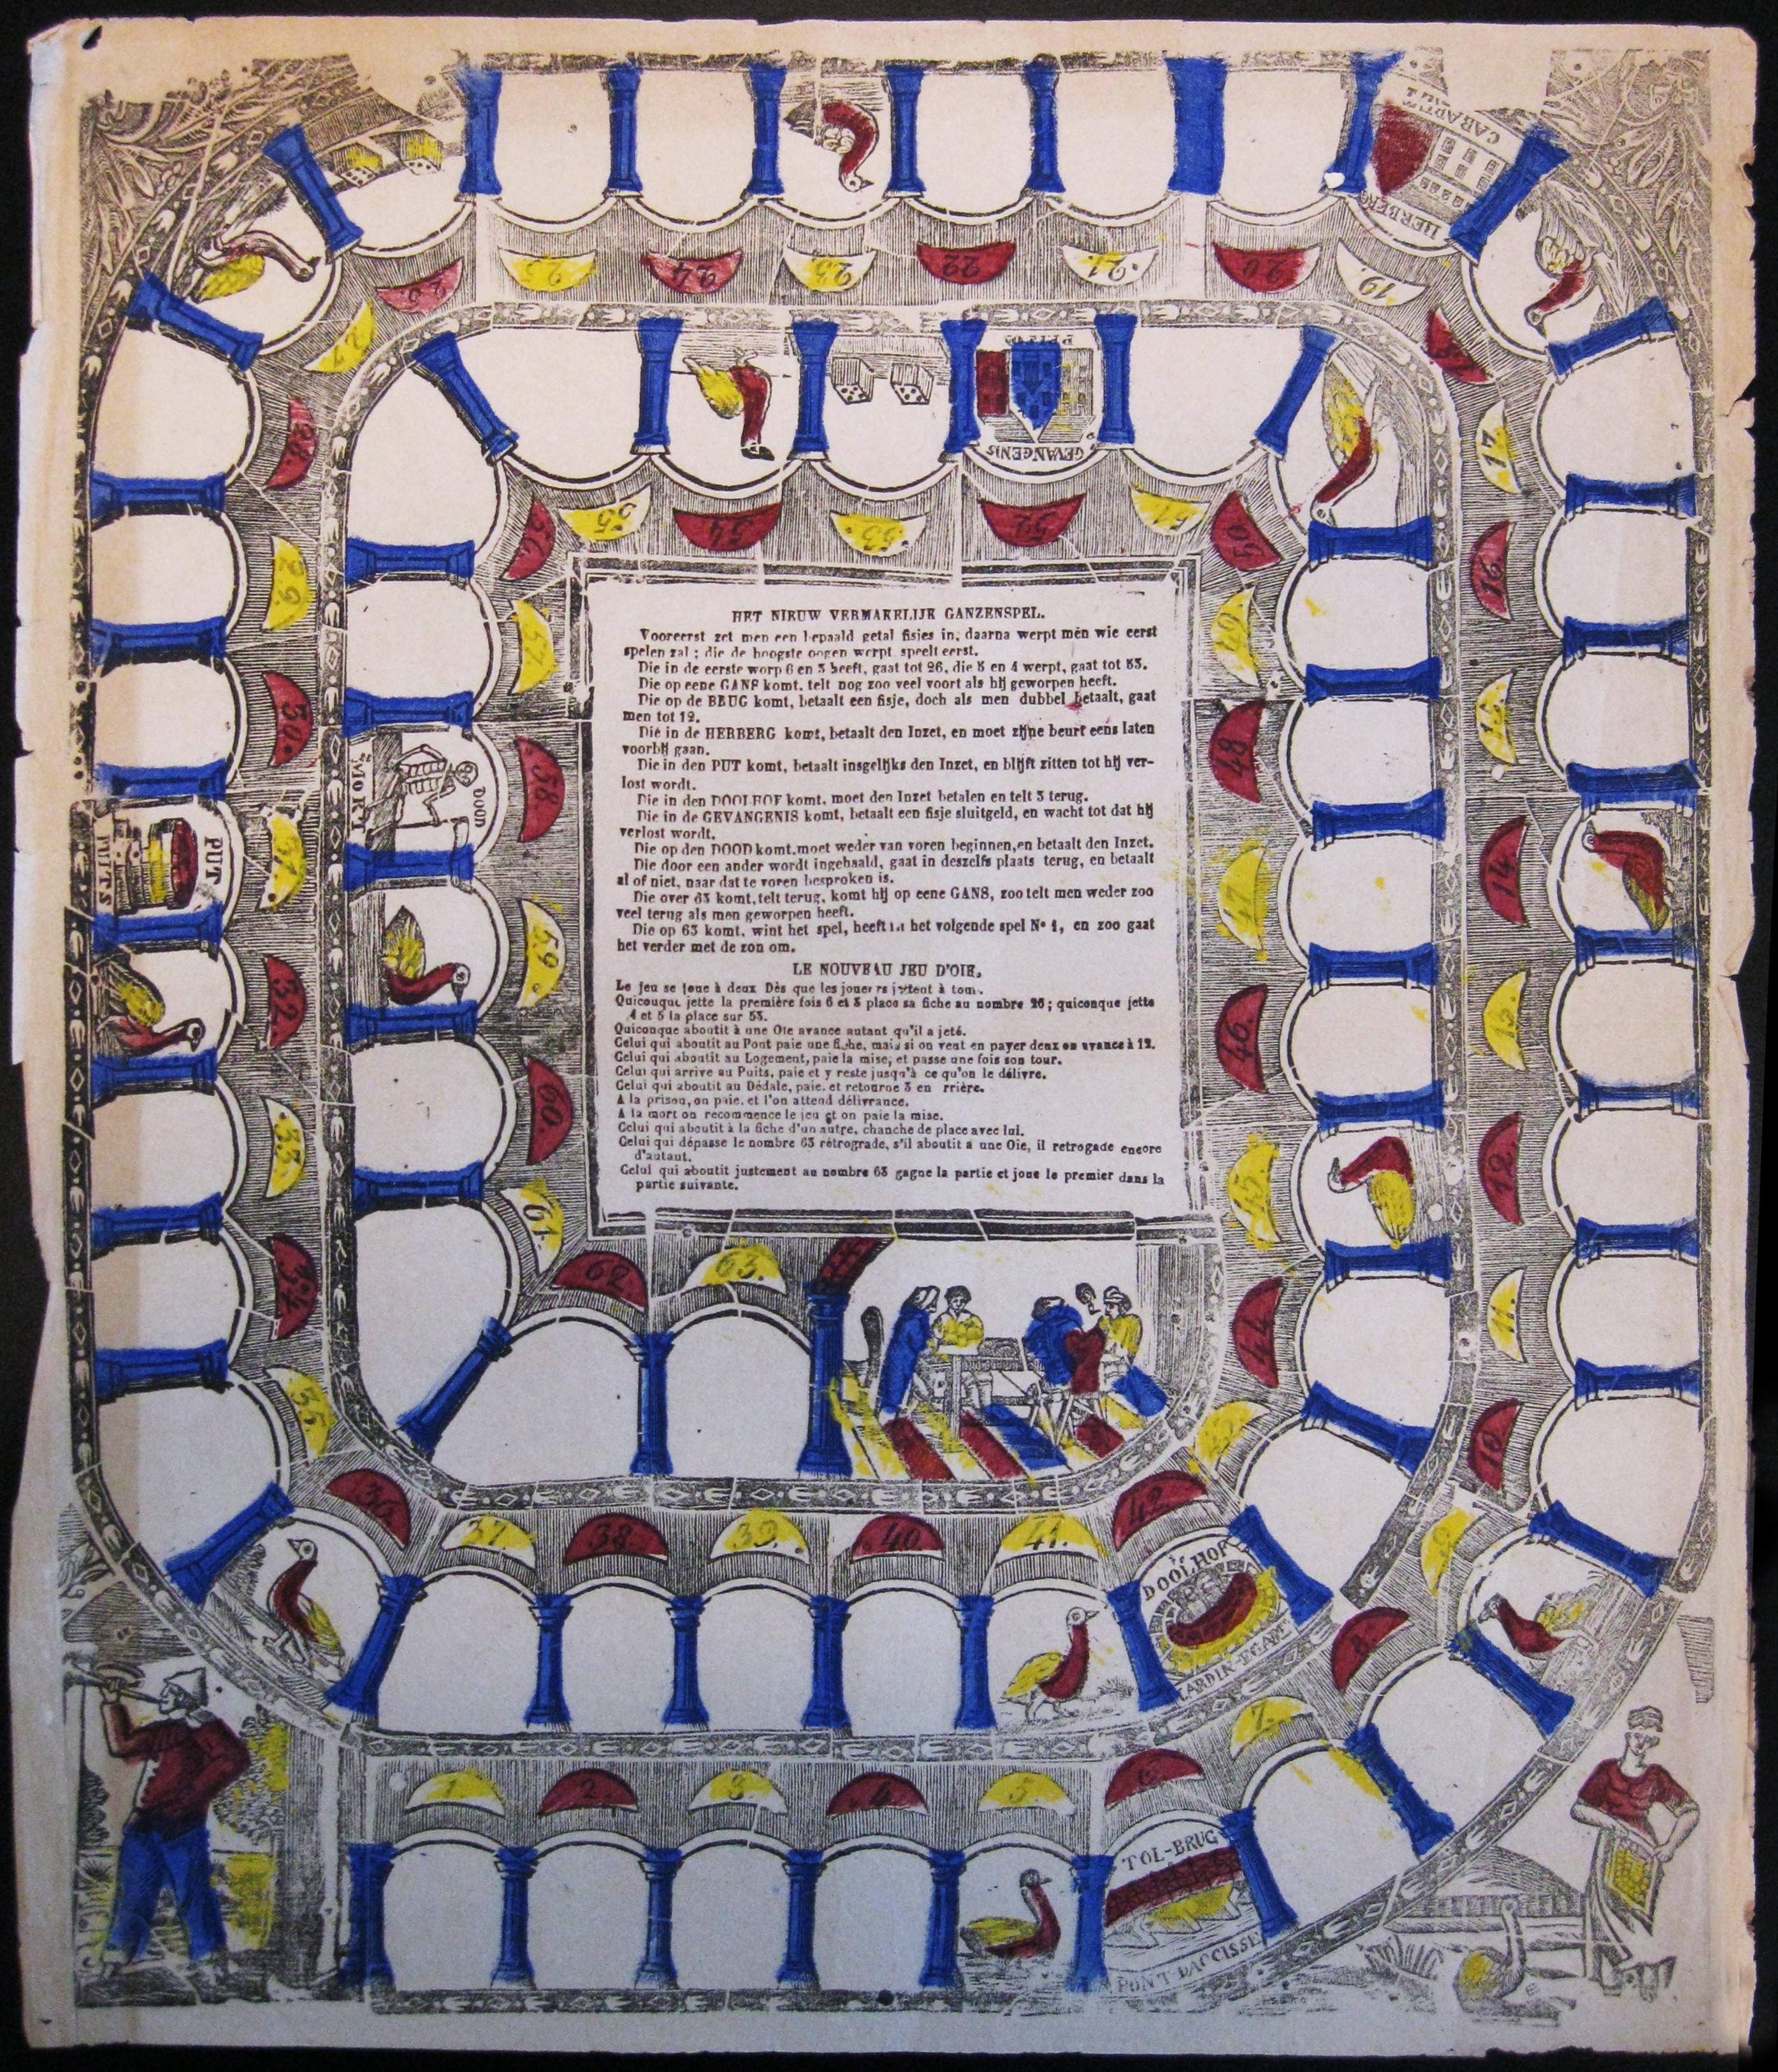 HET NIEUW VERMAKELIJK GANZENSPEL.
Vooreerst zet men een bepaald getal fisjes in, daarna werpt men wie eerst
spelen zal ; die de hoogste oogen werpt speelt eerst.
Die in de eerste worp 6 en 3 heeft, gaat tot 26, die 5 en 4 werpt, gaat tot 53.
Die op eene GANS komt, telt nog zoo veel voort als hij geworpen heeft.
Die op de BRUG komt, betaalt een fisje, doch als men dubbel betaalt, gaat
men tot 12.
Die in de HERBERG komt, betaalt den Inzet, en moet zijne beurt eens laten
voorbij gaan.
Die in den PUT komt, betaalt insgelijks den Inzet, en blijft zitten tot hij ver-
lost wordt.
Die in den DOOLHOF komt, moet den Inzet betalen en telt 3 terug.
Die in de GEVANGENIS komt, betaalt een fisje sluitgeld, en wacht tot dat hij
verlost wordt.
Die op den DOOD komt, moet weder van voren beginnen, en betaalt den Inzet.
Die door een ander wordt ingehaald, gaat in deszelfs plaats terug, en betaalt
al of niet, naar dat te voren besproken is.
Die over 63 komt, telt terug, komt hij op eene GANS, zoo telt men weder zoo
veel terug als men geworpen heeft.
Die op 63 komt, wint het spel, heeft in het volgende spel No 1, en zoo gaat
het verder met de zon om.
LE NOUVEAU JEU D'OIE,
Le jeu se joue à deux Dès que les joueurs jettent à tour.
Quiconque jette la première fois 6 et 3 place sa fiche au nombre 26; quiconque jette
4 et 5 la place sur 53.
Quiconque aboutit à une Oie avance autant qu'il a jeté.
Celui qui aboutit au Pont paie une fiche, mais si on veut en payer deux on avance à 12.
Celui qui aboutit au Logement, paie la mise, et passe une fois son tour.
Celui qui arrive au Puits, paie et y reste jusqu'à ce qu'on le délivre.
Celui qui aboutit au Dédale, paie, et retourne 3 en rrière.
A la prison, on paie, et l'on attend délivrance.
A la mort on recommence le jeu et on paie la mise.
Celui qui aboutit à la fiche d'un autre, chanche de place avec lui.
Celui qui dépasse le nombre 63 rétrograde, s'il aboutit a une Oie, il retrogade encore
d'autant.
Celui qui aboutit justement au nombre 63 gagne la partie et joue le premier dans la
partie suivante.
1
2.
3
4
5
6
TOL-BRUG
PONT D'ACCISSE
7.
8
9
10
11.
12
13
14
15
16.
17
18
19
HERBERG
CABARET
20
21.
22
23.
24
25
26
27
28
29.
30.
31.
PUT
PUITS
32.
33
34
35
36
37
38
39.
40
41.
42
DOOLHOF
43
44
45
46.
47
48
49
50
51
52
GEVANGENIS
53.
54
55
56
57
58
DOOD
MORT
59
60.
61.
62
63.